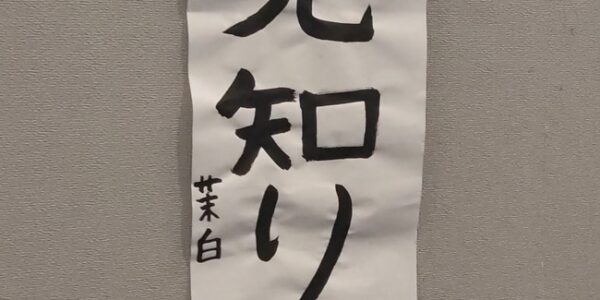 見知り
茉白